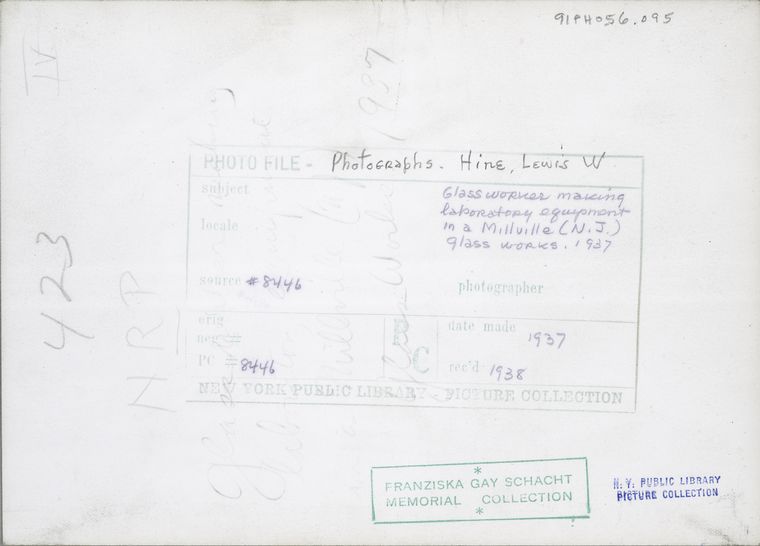 91PH056.095
IV
PHOTO FILE - Photographs. Hine, Lewis W
subject
Glass worker making
laboratory equipment
in a Millville (N.J.)
glass works. 1937
locale
source #8446
photographer
orig
neg #
PC #8446
PC
date made 1937
rec'd 1938
NEW YORK PUBLIC LIBRARY - PICTURE COLLECTION
423
NRP
Glass
Millville
Glass Works 1937
FRANZISKA GAY SCHACHT
MEMORIAL COLLECTION
N. Y. PUBLIC LIBRARY
PICTURE COLLECTION